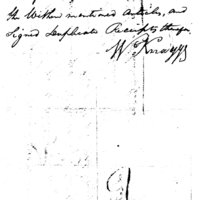 the Within mentioned Articles, and
Signed Duplicate Receipts therefor
W Knaggs